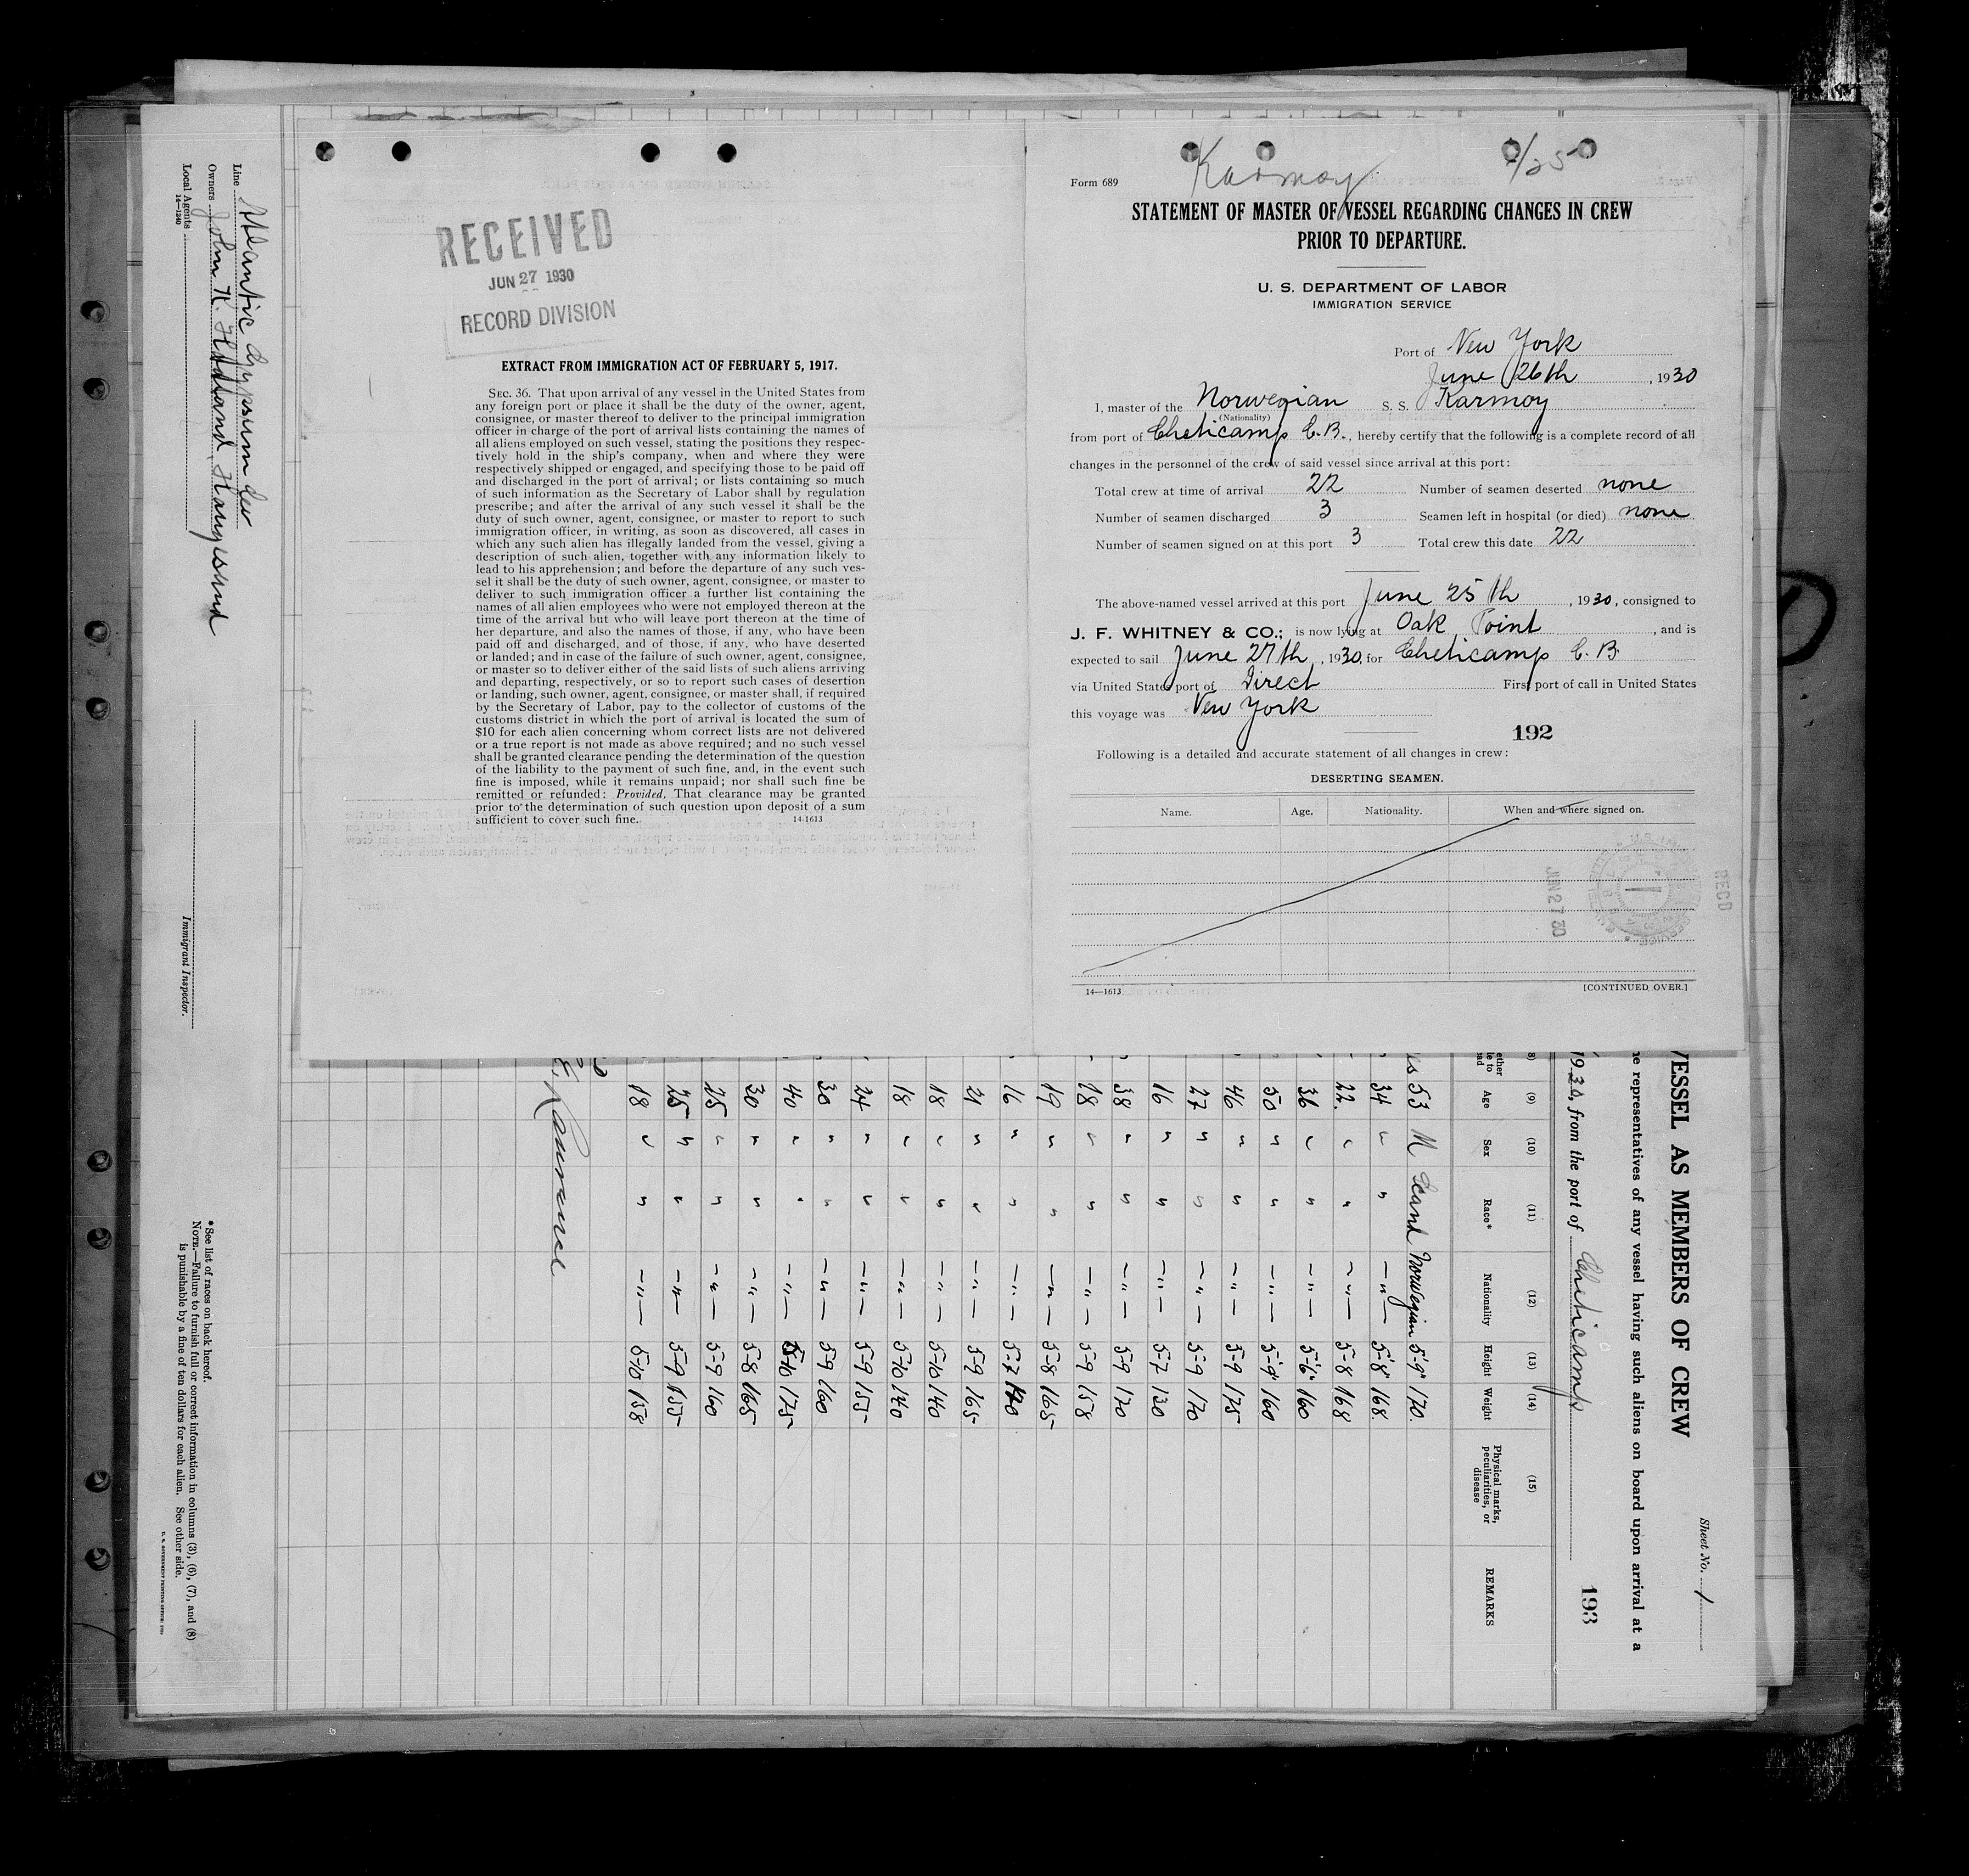 RECEIVED
JUN 27 1930
RECORD DIVISION
EXTRACT FROM IMMIGRATION ACT OF FEBRUARY 5, 1917.
SEC. 36. That upon arrival of any vessel in the United States from
any foreign port or place it shall be the duty of the owner, agent,
consignee, or master thereof to deliver to the principal immigration
officer in charge of the port of arrival lists containing the names of
all aliens employed on such vessel, stating the positions they respec-
tively hold in the ship's company, when and where they were
respectively shipped or engaged, and specifying those to be paid off
and discharged in the port of arrival; or lists containing so much
of such information as the Secretary of Labor shall by regulation
prescribe; and after the arrival of any such vessel it shall be the
duty of such owner, agent, consignee, or master to report to such
immigration officer, in writing, as soon as discovered, all cases in
which any such alien has illegally landed from the vessel, giving a
description of such alien, together with any information likely to
lead to his apprehension; and before the departure of any such ves-
sel it shall be the duty of such owner, agent, consignee, or master to
deliver to such immigration officer a further list containing the
names of all alien employees who were not employed thereon at the
time of the arrival but who will leave port thereon at the time of
her departure, and also the names of those, if any, who have been
paid off and discharged, and of those, if any, who have deserted
or landed; and in case of the failure of such owner, agent, consignee,
or master so to deliver either of the said lists of such aliens arriving
and departing, respectively, or so to report such cases of desertion
or landing, such owner, agent, consignee, or master shall, if required
by the Secretary of Labor, pay to the collector of customs of the
customs district in which the port of arrival is located the sum of
$10 for each alien concerning whom correct lists are not delivered
or a true report is not made as above required; and no such vessel
shall be granted clearance pending the determination of the question
of the liability to the payment of such fine, and, in the event such
fine is imposed, while it remains unpaid; nor shall such fine be
remitted or refunded: Provided, That clearance may be granted
prior to the determination of such question upon deposit of a sum
sufficient to cover such fine.
14-1613
Karmoy
/25
Form 689
STATEMENT OF MASTER OF VESSEL REGARDING CHANGES IN CREW
PRIOR TO DEPARTURE.
U. S. DEPARTMENT OF LABOR
IMMIGRATION SERVICE
Port of New York
June 26th, 1930
I, master of the Norwegian S. S. Karmoy
(Nationality)
from port of Cheticamp C.B., hereby certify that the following is a complete record of all
changes in the personnel of the crew of said vessel since arrival at this port:
Total crew at time of arrival 22 Number of seamen deserted none
Number of seamen discharged 3 Seamen left in hospital (or died) none
Number of seamen signed on at this port 3 Total crew this date 22
The above-named vessel arrived at this port June 25th, 1930, consigned to
J. F. WHITNEY & CO.; is now lying at Oak Point, and is
expected to sail June 27th, 1930, for Cheticamp C. B.
via United States port of Direct First port of call in United States
this voyage was New York
192
Following is a detailed and accurate statement of all changes in crew:
DESERTING SEAMEN.
Name. Age. Nationality. When and where signed on.
JUN 27 30
REC'D
14—1613
[CONTINUED OVER.]
Sheet No. 1
VESSEL AS MEMBERS OF CREW
he representatives of any vessel having such aliens on board upon arrival at a
1930, from the port of Cheticamp
193
(9) (10) (11) (12) (13) (14) (15)
Age Sex Race* Nationality Height Weight Physical marks, peculiarities, or disease REMARKS
53 M Scand Norwegian 5-9" 170.
34 " " — " — 5-8" 168.
22. " " — " — 5-8 168
36 " " — " — 5-6" 160
50 " " — " — 5-9" 160
46 " " — " — 5-9 175
27 " " — " — 5-9 170
16 " " — " — 5-7 130
38 " " — " — 5-9 170
18 " " — " — 5-9 158
19 " " — " — 5-8 165
16 " " — " — 5-7 140
21 " " — " — 5-9 165
18 " " — " — 5-10 140
18 " " — " — 5-10 140
24 " " — " — 5-9 155
30 " " — " — 5-9 160
40 " " — " — 5-10 175
30 " " — " — 5-8 165
25 " " — " — 5-9 160
25 " " — " — 5-9 155
18 " " — " — 5-10 158
Line Atlantic Gypsum
Owners John K. Haugesund
Local Agents
14—1240
Immigrant Inspector.
*See list of races on back hereof.
NOTE.—Failure to furnish full or correct information in columns (3), (6), (7), and (8)
is punishable by a fine of ten dollars for each alien. See other side.
U. S. GOVERNMENT PRINTING OFFICE